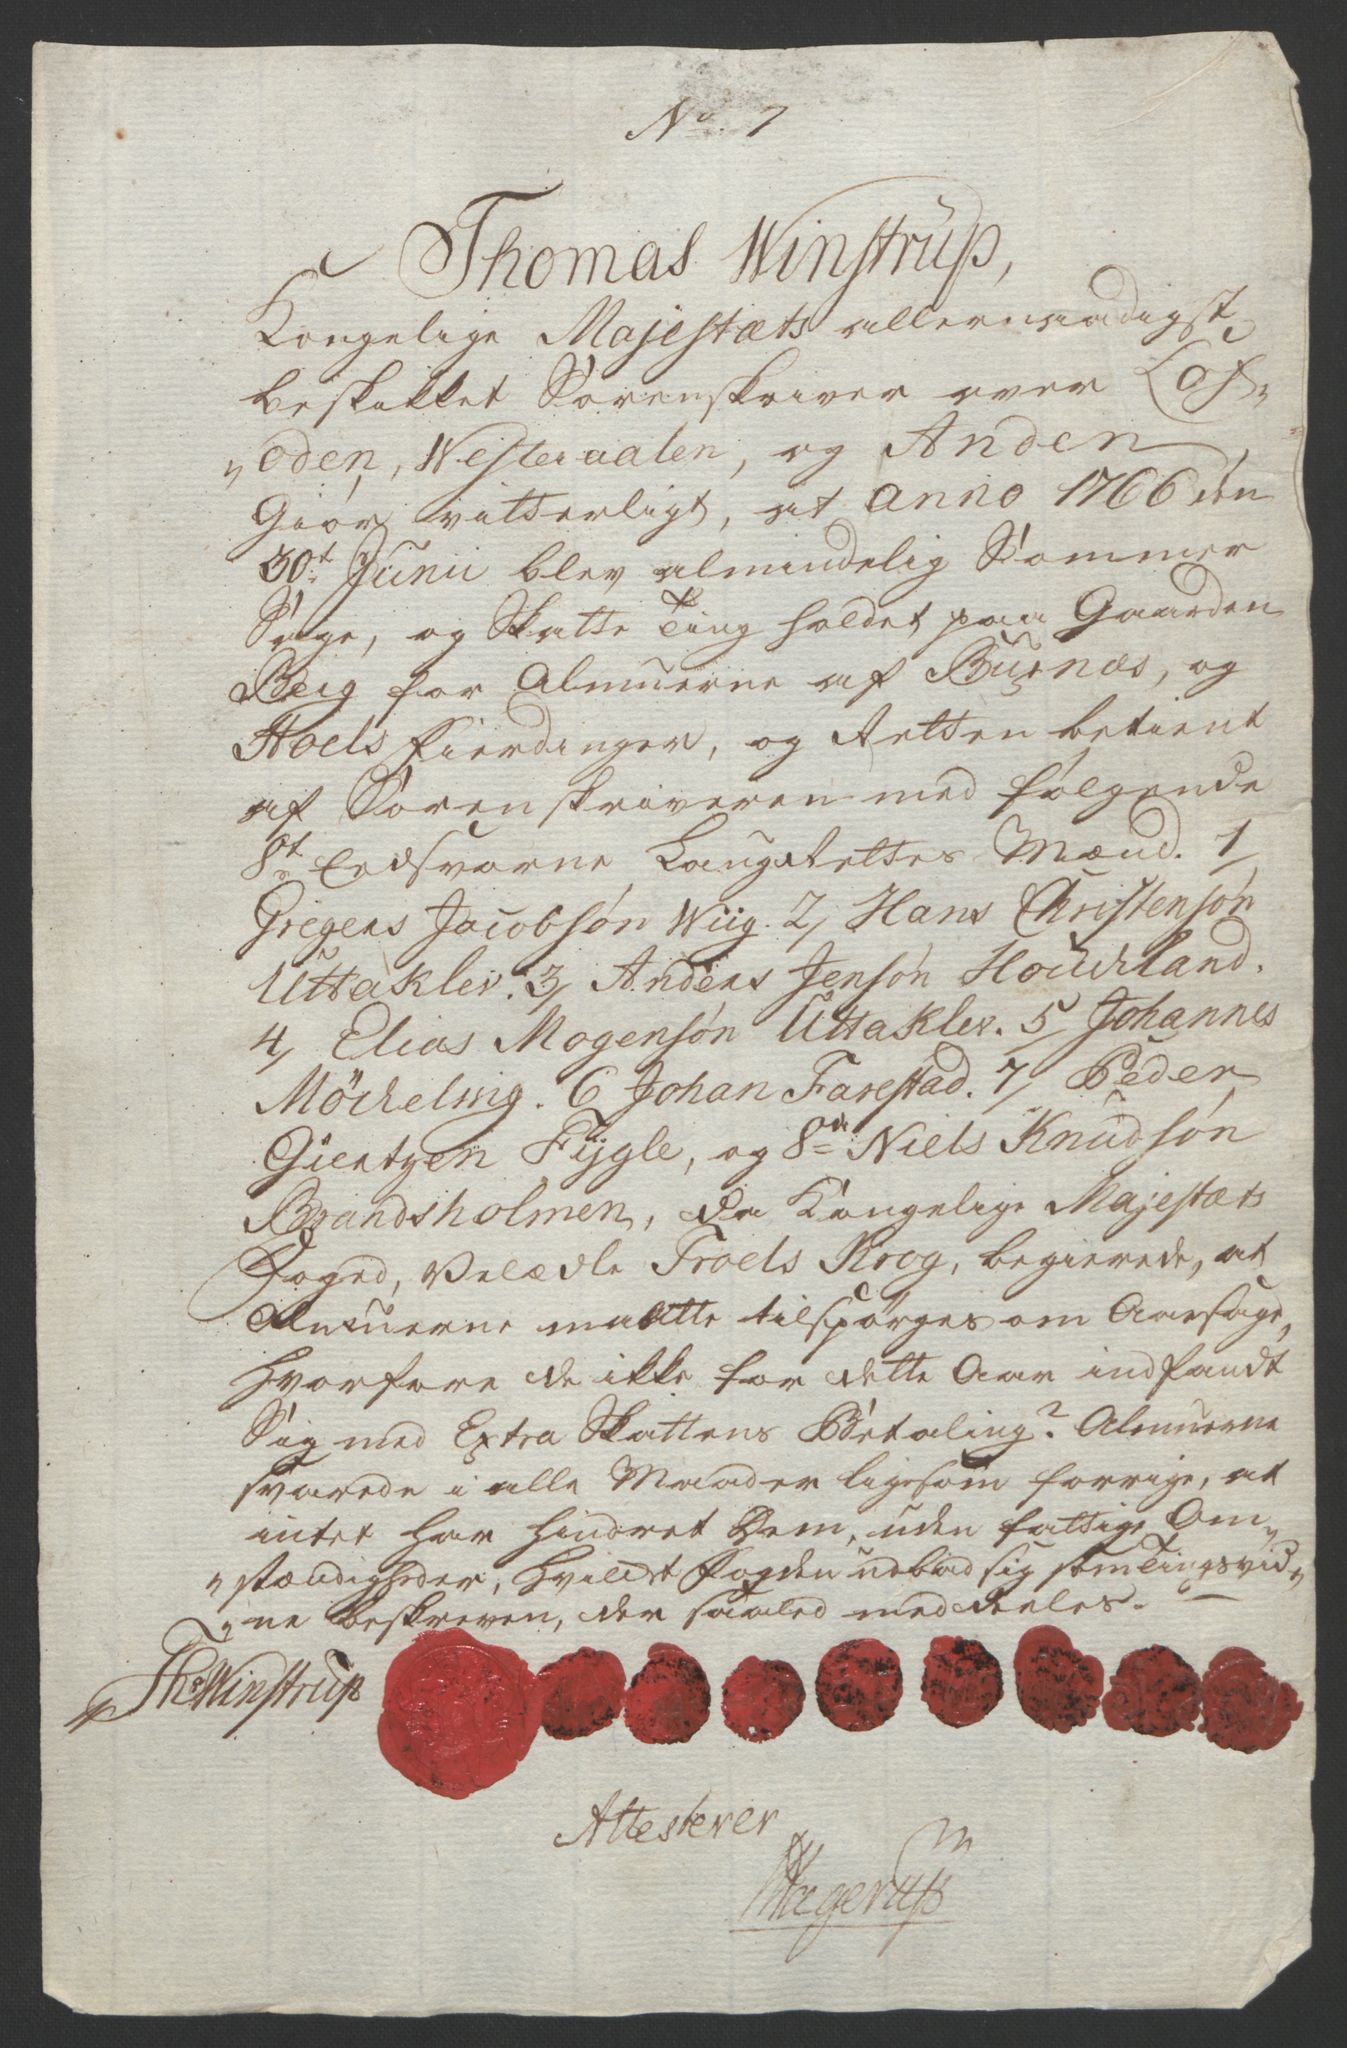 No. 7
Thomas Winstrup,
Kongelige Majestæts allernaadigst
beskikket Sorenskriver over Lof-
„oden, Westeraalen, og Anden,
Giør vitterligt, at anno 1766 den
30t Junii blev almindelig Sommer
Sage, og Skatte Ting holdet paa Gaarden
Berg for Almuerne af Buxnæs, og
Hoels Fierdinger, og Retten betient
af Sorenskriveren med følgende
8t Eedsvorne Laugrettes Mænd. 1/
Gregers Jacobsøn Wiig. 2/ Hans Christensøn
Uttakler. 3/ Anders Jensøn Houchland.
4/ Elias Mogensøn Uttakler. 5/ Johannes
Möchelwig. 6 Johan Farestad. 7/ Peder
Giertzen Fÿgle, og 8de Niels Knudsøn
Brandsholmen, da Kongelige Majestæts
Foged, Velædle Troels Krog, begierede, at
Almuerne maatte tilspørges om Aarsage,
hvorfore de ikke for dette Aar indfandt
Sig med Extra Skattens Betaling? Almuerne
svarede i alle Maader ligesom forrige, at
intet har hindret Dem, uden fattige Om-
„stændigheder, hvilket Fogden udbad sig som Tingsvid-
„ne beskreven, der saaled meddeeles.
Ths Winstrup
Attesterer
Hagerup